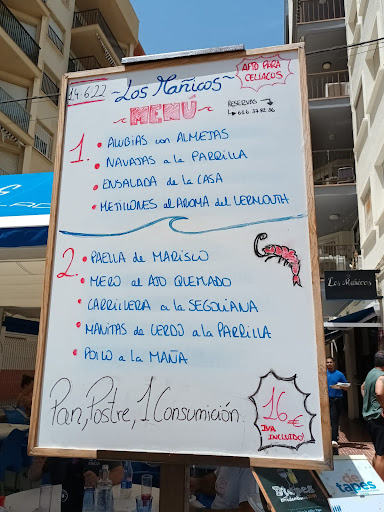 14.6.22
~Los Mañicos~
APTO PARA
CELIACOS
MENÚ
RESERVAS
1.
• ALUBIAS con ALMEJAS
• NAVAJAS a la PARRILLA
• ENSALADA de la CASA
• MEJILLONES al AROMA del VERMOUTH
2.
• PAELLA de MARISCO
• MERO al AJO QUEMADO
• CARRILLERA a la SEGOVIANA
• MANITAS de CERDO a la PARRILLA
• POLLO a la MAÑA
Pan, Postre, 1 Consumición.
16€
IVA
INCLUIDO
Los Mañicos
tapes
de
tapes